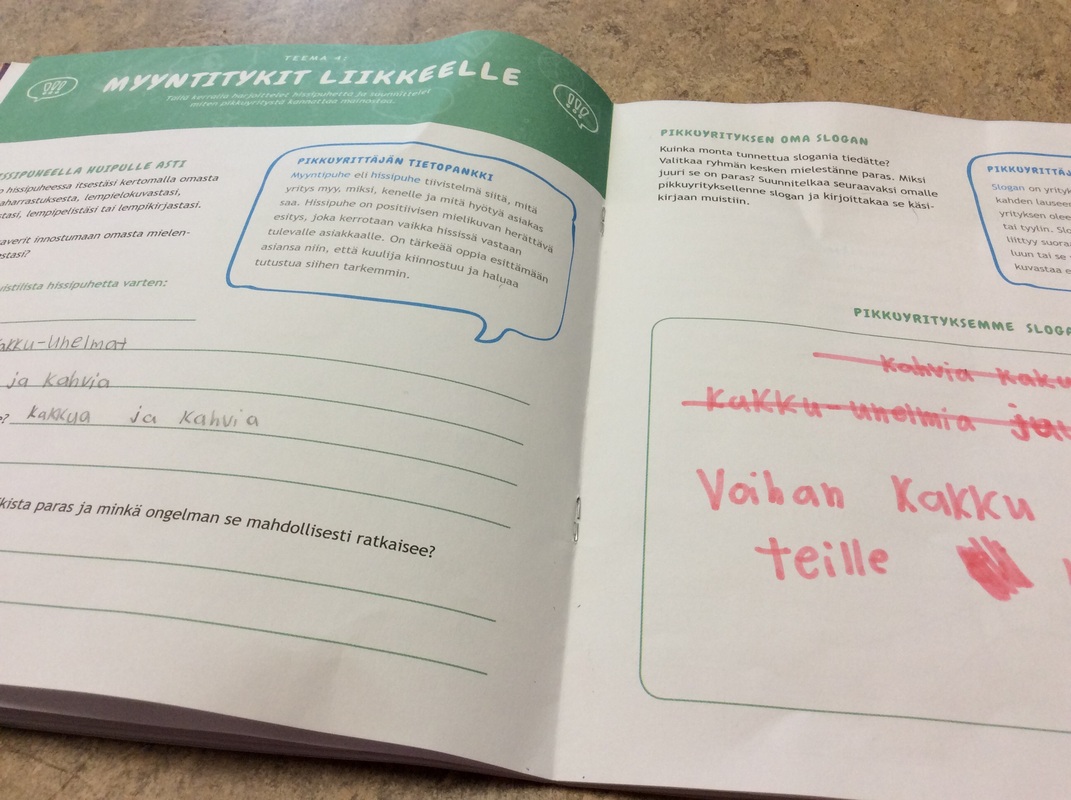 TEEMA 4:
MYYNTITYKIT LIIKKEELLE
Tällä kerralla harjoittelet hissipuhetta ja suunnittelet
miten pikkuyritystä kannattaa mainostaa.
SSIPUHEELLA HUIPULLE ASTI
hissipuheessa itsestäsi kertomalla omasta
harrastuksesta, lempielokuvastasi,
stasi, lempipelistäsi tai lempikirjastasi.
averit innostumaan omasta mielen-
estasi?
vistilista hissipuhetta varten:
akku-Unelmat
ja Kahvia
? kakkua ja kahvia
kista paras ja minkä ongelman se mahdollisesti ratkaisee?
PIKKUYRITTÄJÄN TIETOPANKKI
Myyntipuhe eli hissipuhe tiivistelmä siitä, mitä
yritys myy, miksi, kenelle ja mitä hyötyä asiakas
saa. Hissipuhe on positiivisen mielikuvan herättävä
esitys, joka kerrotaan vaikka hississä vastaan
tulevalle asiakkaalle. On tärkeää oppia esittämään
asiansa niin, että kuulija kiinnostuu ja haluaa
tutustua siihen tarkemmin.
PIKKUYRITYKSEN OMA SLOGAN
Kuinka monta tunnettua slogania tiedätte?
Valitkaa ryhmän kesken mielestänne paras. Miksi
juuri se on paras? Suunnitelkaa seuraavaksi omalle
pikkuyrityksellenne slogan ja kirjoittakaa se käsi-
kirjaan muistiin.
PIKKUYRITTÄJ
Slogan on yrityk
kahden lauseen
yrityksen olee
tai tyylin. Slo
liittyy suora
luun tai se
kuvastaa e
PIKKUYRITYKSEMME SLOGA
Kahvia kaku
Kakku-unelmia ja
Voihan Kakku
teille